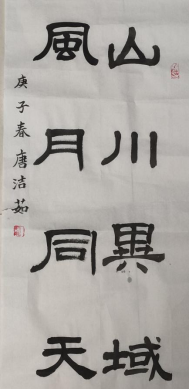 山川異域
風月同天
庚子春唐洁茹